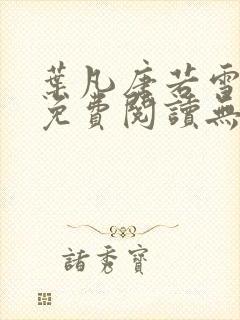 葉凡唐若雪
免費閱讀無
諸秀寶